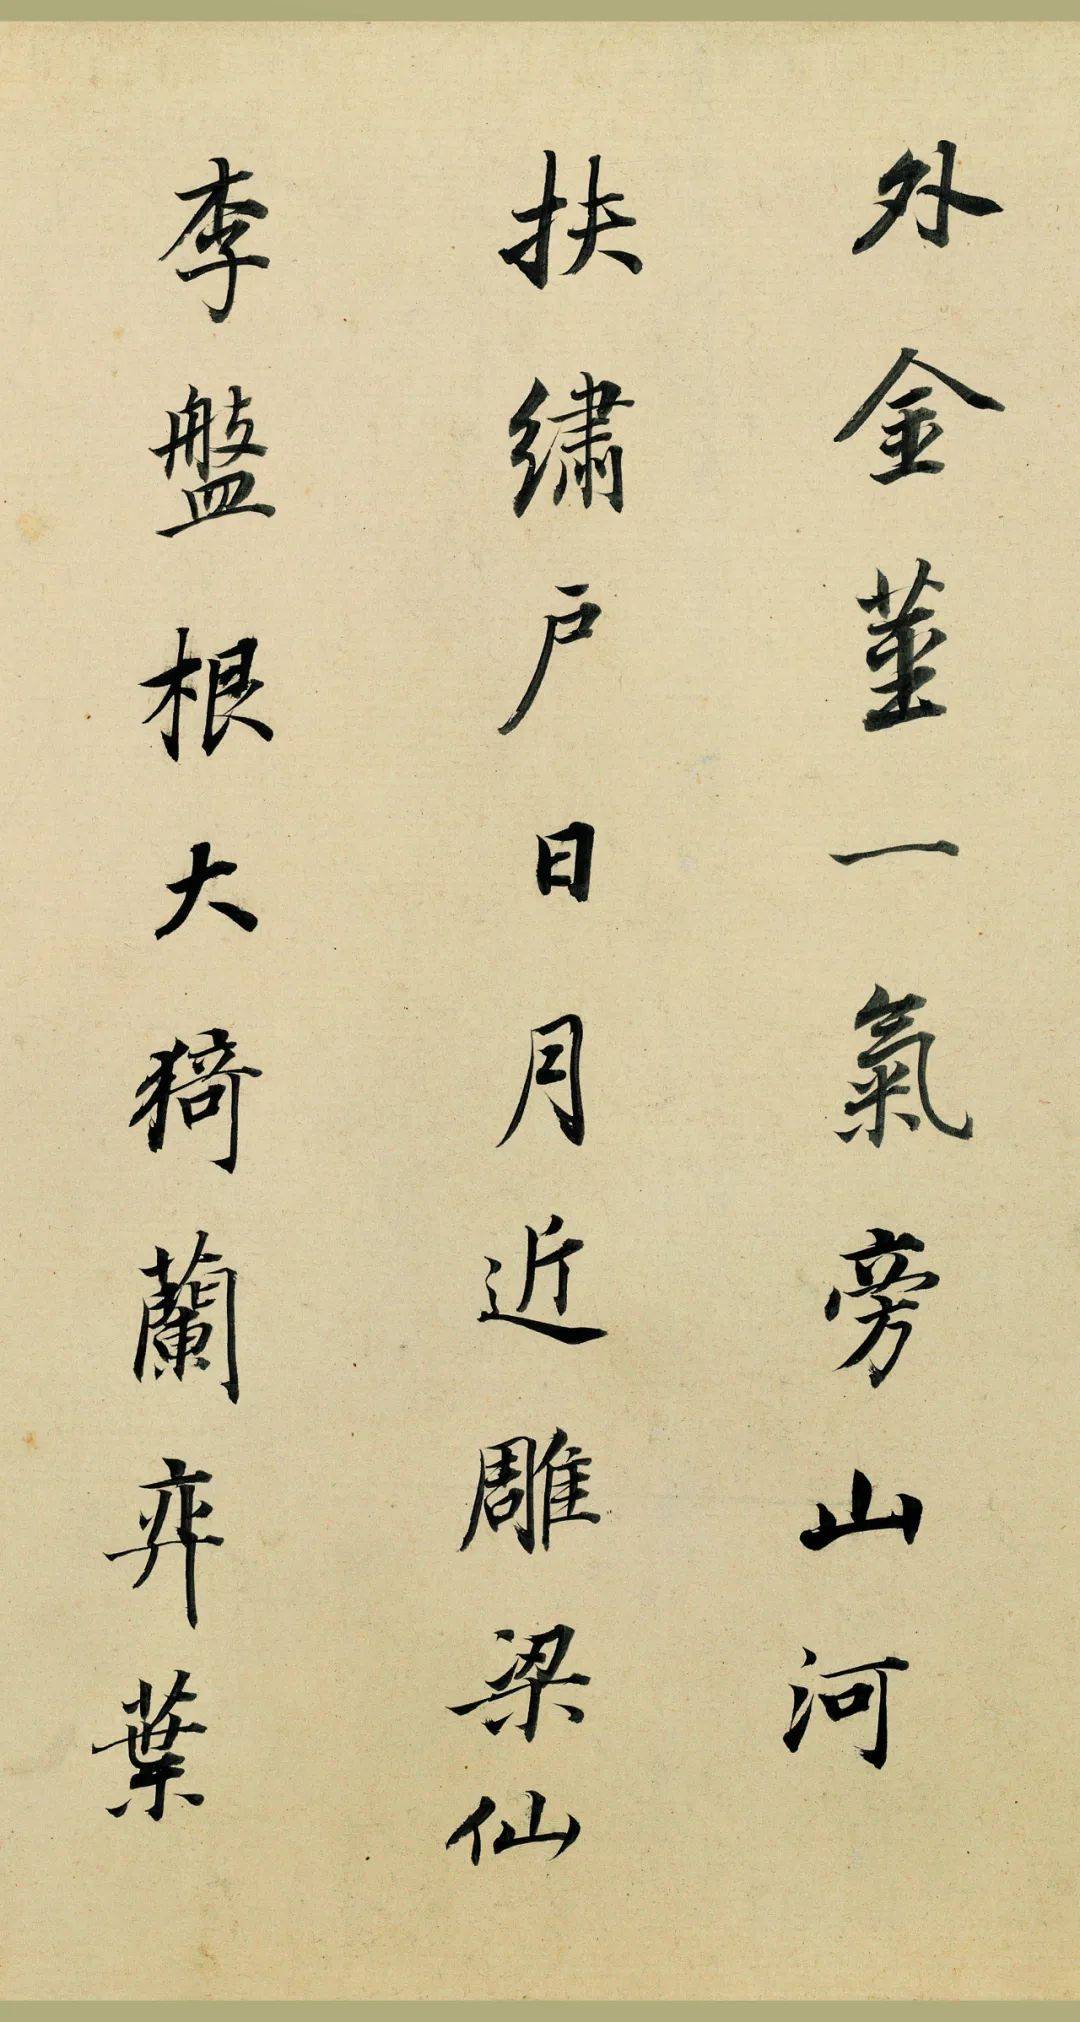 外金莖一氣旁山河
扶繡户日月近雕梁仙
李盤根大猗蘭弈葉